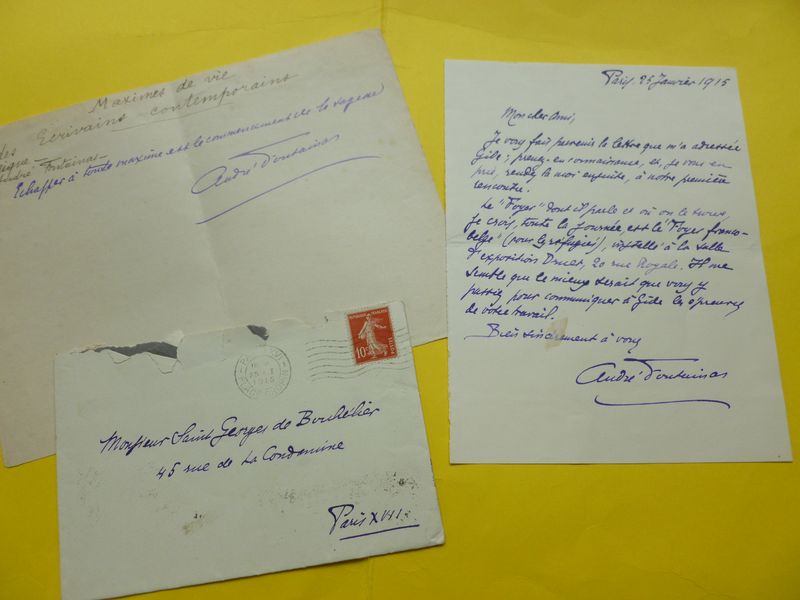 Maximes de vie
des Ecrivains contemporains
Echapper à toute maxime est le commencement de la sagesse
André Fontainas
Paris, 25 Janvier 1915
Mon cher Ami,
Je vous fait parvenir la lettre que m'a adressée
Gide; prenez-en connaissance, et, je vous en
prie, rendez la moi ensuite, à notre première
rencontre.
Le "Foyer" dont il parle et où on le trouve,
je crois, toute la journée, est le "Foyer franco-
belge" (pour les réfugiés), installé à la salle
d'exposition Druet, 20 rue Royale. Il me
semble que le mieux serait que vous y
passiez pour communiquer à Gide les épreuves
de votre travail.
Bien sincèrement à vous
André Fontainas
REPUBLIQUE FRANÇAISE
10c
POSTES
1915
Monsieur Saint Georges de Bouhélier
45 rue de La Condamine
Paris XVII